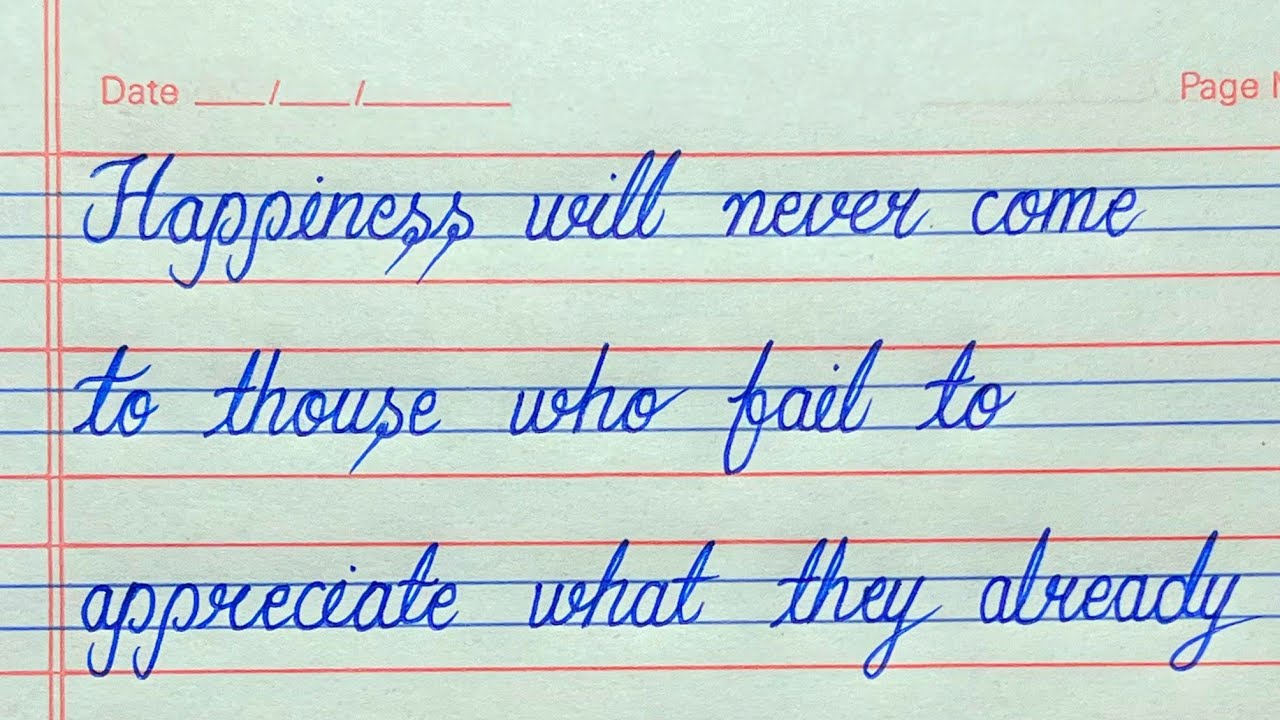 Date ___/___/______ Page N
Happiness will never come
to thouse who fail to
appreciate what they already